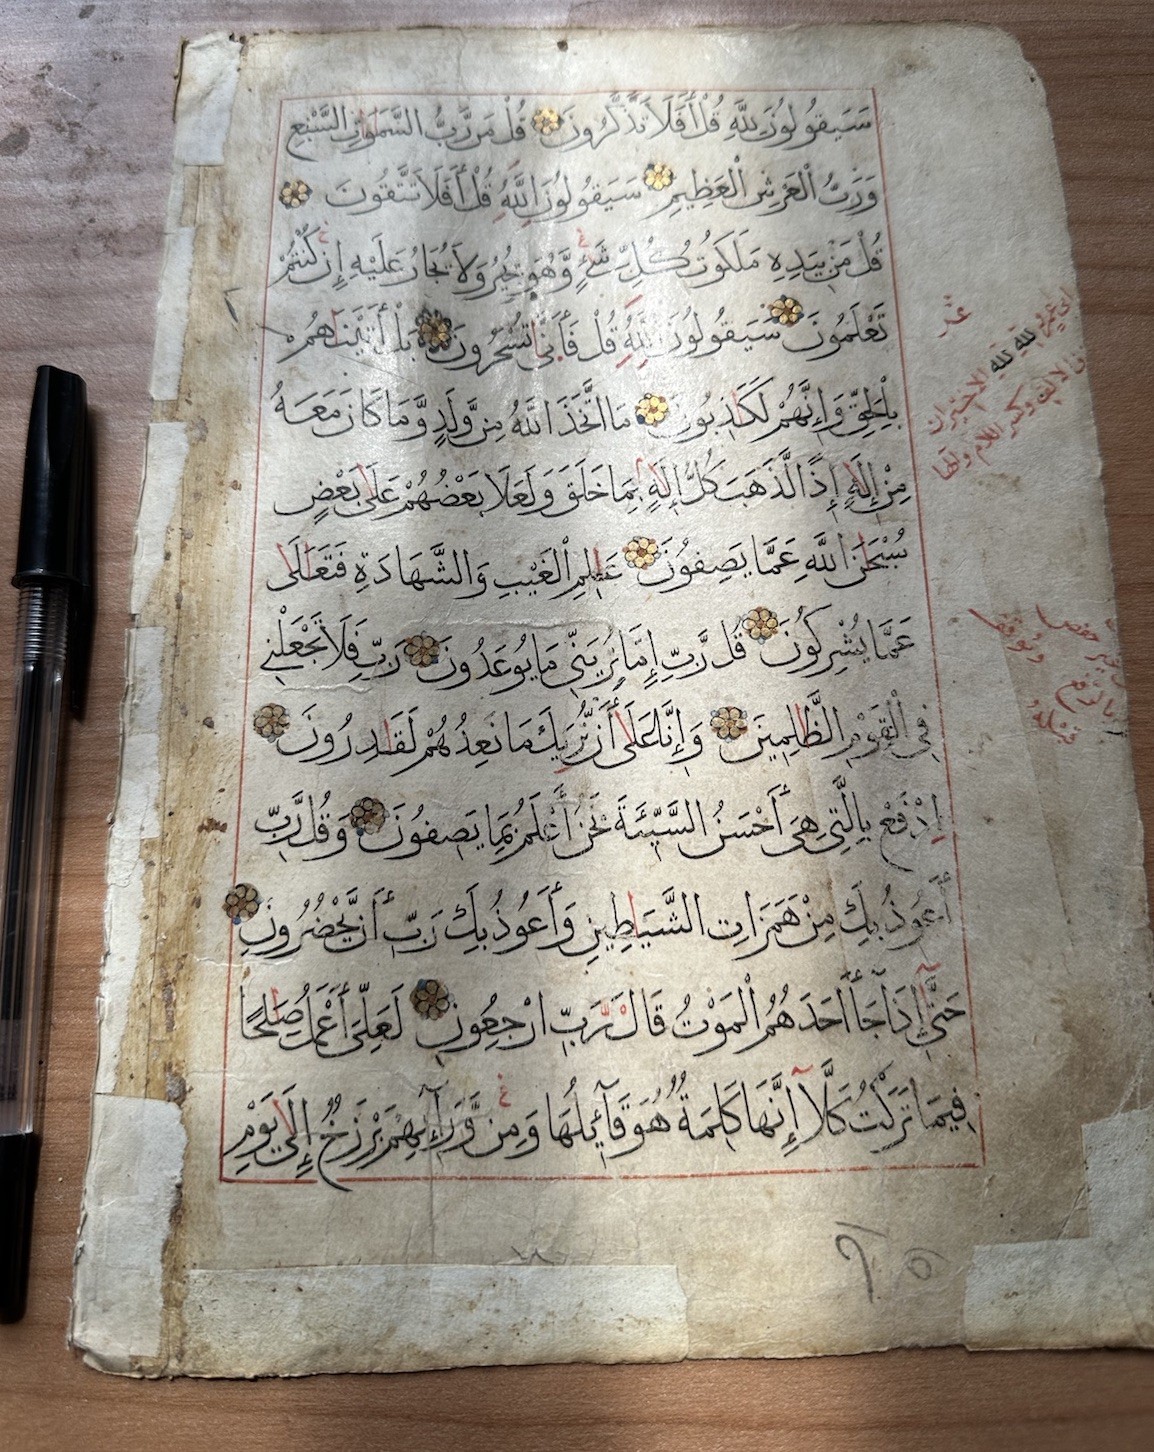 سَيَقُولُونَ لِلَّهِ قُلْ أَفَلَا تَذَّكَّرُونَ قُلْ مَن رَّبُّ السَّمَٰوَٰتِ السَّبْعِ
وَرَبُّ الْعَرْشِ الْعَظِيمِ سَيَقُولُونَ لِلَّهِ قُلْ أَفَلَا تَتَّقُونَ
قُلْ مَنْ بِيَدِهِ مَلَكُوتُ كُلِّ شَيْءٍ وَّهُوَ يُجِيرُ وَلَا يُجَارُ عَلَيْهِ إِن كُنْتُمْ
تَعْلَمُونَ سَيَقُولُونَ لِلَّهِ قُلْ فَأَنَّىٰ تُسْحَرُونَ بَلْ أَتَيْنَٰهُمْ
بِالْحَقِّ وَإِنَّهُمْ لَكَٰذِبُونَ مَا اتَّخَذَ اللَّهُ مِن وَّلَدٍ وَّمَا كَانَ مَعَهُ
مِنْ إِلَٰهٍ إِذًا لَّذَهَبَ كُلُّ إِلَٰهٍ بِمَا خَلَقَ وَلَعَلَا بَعْضُهُمْ عَلَىٰ بَعْضٍ
سُبْحَٰنَ اللَّهِ عَمَّا يَصِفُونَ عَٰلِمِ الْغَيْبِ وَالشَّهَادَةِ فَتَعَٰلَىٰ
عَمَّا يُشْرِكُونَ قُل رَّبِّ إِمَّا تُرِيَنِّي مَا يُوعَدُونَ رَبِّ فَلَا تَجْعَلْنِي
فِي الْقَوْمِ الظَّٰلِمِينَ وَإِنَّا عَلَىٰ أَن نُّرِيَكَ مَا نَعِدُهُمْ لَقَٰدِرُونَ
اِدْفَعْ بِالَّتِي هِيَ أَحْسَنُ السَّيِّئَةَ نَحْنُ أَعْلَمُ بِمَا يَصِفُونَ وَقُل رَّبِّ
أَعُوذُ بِكَ مِنْ هَمَزَاتِ الشَّيَٰطِينِ وَأَعُوذُ بِكَ رَبِّ أَن يَّحْضُرُونِ
حَتَّىٰ إِذَا جَاءَ أَحَدَهُمُ الْمَوْتُ قَالَ رَبِّ ارْجِعُونِ لَعَلِّي أَعْمَلُ صَٰلِحًا
فِيمَا تَرَكْتُ كَلَّا إِنَّهَا كَلِمَةٌ هُوَ قَآئِلُهَا وَمِن وَّرَآئِهِم بَرْزَخٌ إِلَىٰ يَوْمِ